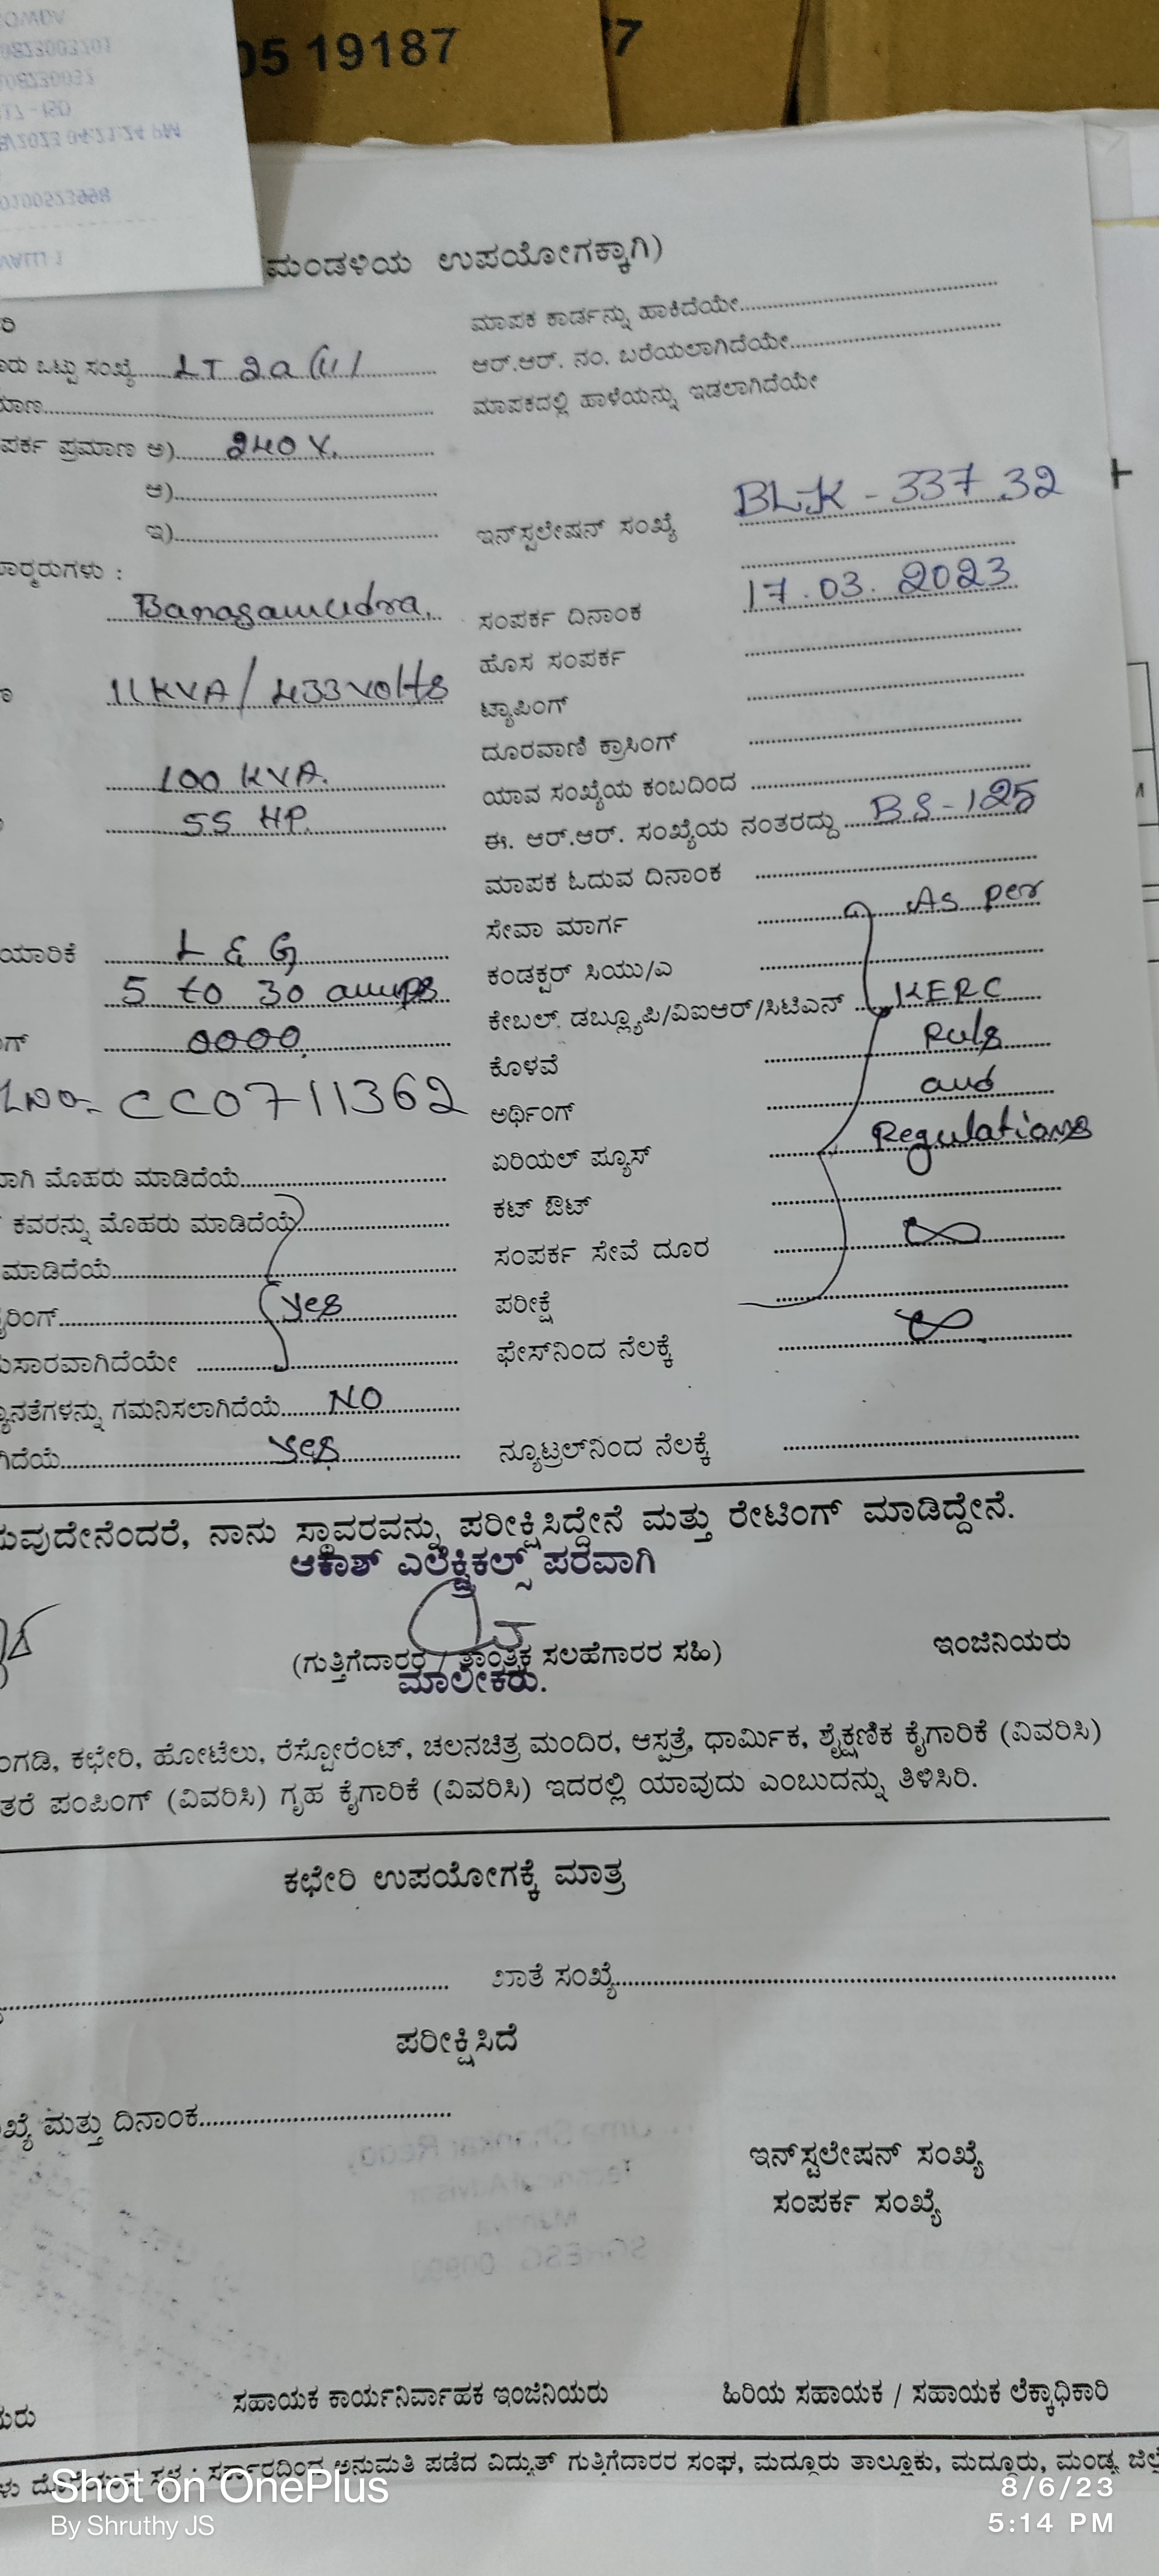 05 19187
(ಮಂಡಳಿಯ ಉಪಯೋಗಕ್ಕಾಗಿ)
ಮಾಪಕ ಕಾರ್ಡನ್ನು ಹಾಕಿದೆಯೇ
ಒಟ್ಟು ಸಂಖ್ಯೆ LT 2a (ii)
ಆರ್.ಆರ್. ನಂ. ಬರೆಯಲಾಗಿದೆಯೇ
ಮಾಪಕದಲ್ಲಿ ಹಾಳೆಯನ್ನು ಇಡಲಾಗಿದೆಯೇ
ಪ್ರಮಾಣ ಅ) 240 V.
ಆ)
ಇ)
ಇನ್‌ಸ್ಟಲೇಷನ್ ಸಂಖ್ಯೆ BLK - 33732
Banasamudra.
ಸಂಪರ್ಕ ದಿನಾಂಕ 17.03.2023
ಹೊಸ ಸಂಪರ್ಕ
11KVA / 433 volts
ಟ್ಯಾಪಿಂಗ್
ದೂರವಾಣಿ ಕ್ರಾಸಿಂಗ್
100 KVA.
ಯಾವ ಸಂಖ್ಯೆಯ ಕಂಬದಿಂದ
55 HP.
ಈ. ಆರ್.ಆರ್. ಸಂಖ್ಯೆಯ ನಂತರದ್ದು BS-125
ಮಾಪಕ ಓದುವ ದಿನಾಂಕ
ಸೇವಾ ಮಾರ್ಗ As per
L & G
ಕಂಡಕ್ಟರ್ ಸಿಯು/ಎ
5 to 30 amps
ಕೇಬಲ್ ಡಬ್ಲ್ಯೂಪಿ/ವಿಐಆರ್/ಸಿಟಿಎನ್ KERC
0000.
ಕೊಳವೆ Ruls
CC0711362
ಅರ್ಥಿಂಗ್ and
ಏರಿಯಲ್ ಪ್ಯೂಸ್ Regulations
ಮೊಹರು ಮಾಡಿದೆಯೆ
ಕಟ್ ಔಟ್
ಕವರನ್ನು ಮೊಹರು ಮಾಡಿದೆಯೆ
ಸಂಪರ್ಕ ಸೇವೆ ದೂರ
ಮಾಡಿದೆಯೆ
ಪರೀಕ್ಷೆ
Yes
ಫೇಸ್‌ನಿಂದ ನೆಲಕ್ಕೆ
ಗಮನಿಸಲಾಗಿದೆಯೆ NO
Yes
ನ್ಯೂಟ್ರಲ್‌ನಿಂದ ನೆಲಕ್ಕೆ
ನಾನು ಸ್ಥಾವರವನ್ನು ಪರೀಕ್ಷಿಸಿದ್ದೇನೆ ಮತ್ತು ರೇಟಿಂಗ್ ಮಾಡಿದ್ದೇನೆ.
ಆಕಾಶ್ ಎಲೆಕ್ಟ್ರಿಕಲ್ಸ್ ಪರವಾಗಿ
(ಗುತ್ತಿಗೆದಾರರ / ತಾಂತ್ರಿಕ ಸಲಹೆಗಾರರ ಸಹಿ) ಇಂಜಿನಿಯರು
ಮಾಲೀಕರು.
ಕಛೇರಿ, ಹೋಟೆಲು, ರೆಸ್ಟೋರೆಂಟ್, ಚಲನಚಿತ್ರ ಮಂದಿರ, ಆಸ್ಪತ್ರೆ, ಧಾರ್ಮಿಕ, ಶೈಕ್ಷಣಿಕ ಕೈಗಾರಿಕೆ (ವಿವರಿಸಿ)
ಪಂಪಿಂಗ್ (ವಿವರಿಸಿ) ಗೃಹ ಕೈಗಾರಿಕೆ (ವಿವರಿಸಿ) ಇದರಲ್ಲಿ ಯಾವುದು ಎಂಬುದನ್ನು ತಿಳಿಸಿರಿ.
ಕಛೇರಿ ಉಪಯೋಗಕ್ಕೆ ಮಾತ್ರ
ಖಾತೆ ಸಂಖ್ಯೆ
ಪರೀಕ್ಷಿಸಿದೆ
ಮತ್ತು ದಿನಾಂಕ
ಇನ್‌ಸ್ಟಲೇಷನ್ ಸಂಖ್ಯೆ
ಸಂಪರ್ಕ ಸಂಖ್ಯೆ
ಸಹಾಯಕ ಕಾರ್ಯನಿರ್ವಾಹಕ ಇಂಜಿನಿಯರು ಹಿರಿಯ ಸಹಾಯಕ / ಸಹಾಯಕ ಲೆಕ್ಕಾಧಿಕಾರಿ
ಸ್ಥಳ : ಸರ್ಕಾರದಿಂದ ಅನುಮತಿ ಪಡೆದ ವಿದ್ಯುತ್ ಗುತ್ತಿಗೆದಾರರ ಸಂಘ, ಮದ್ದೂರು ತಾಲ್ಲೂಕು, ಮದ್ದೂರು, ಮಂಡ್ಯ
Shot on OnePlus
By Shruthy JS
8/6/23
5:14 PM